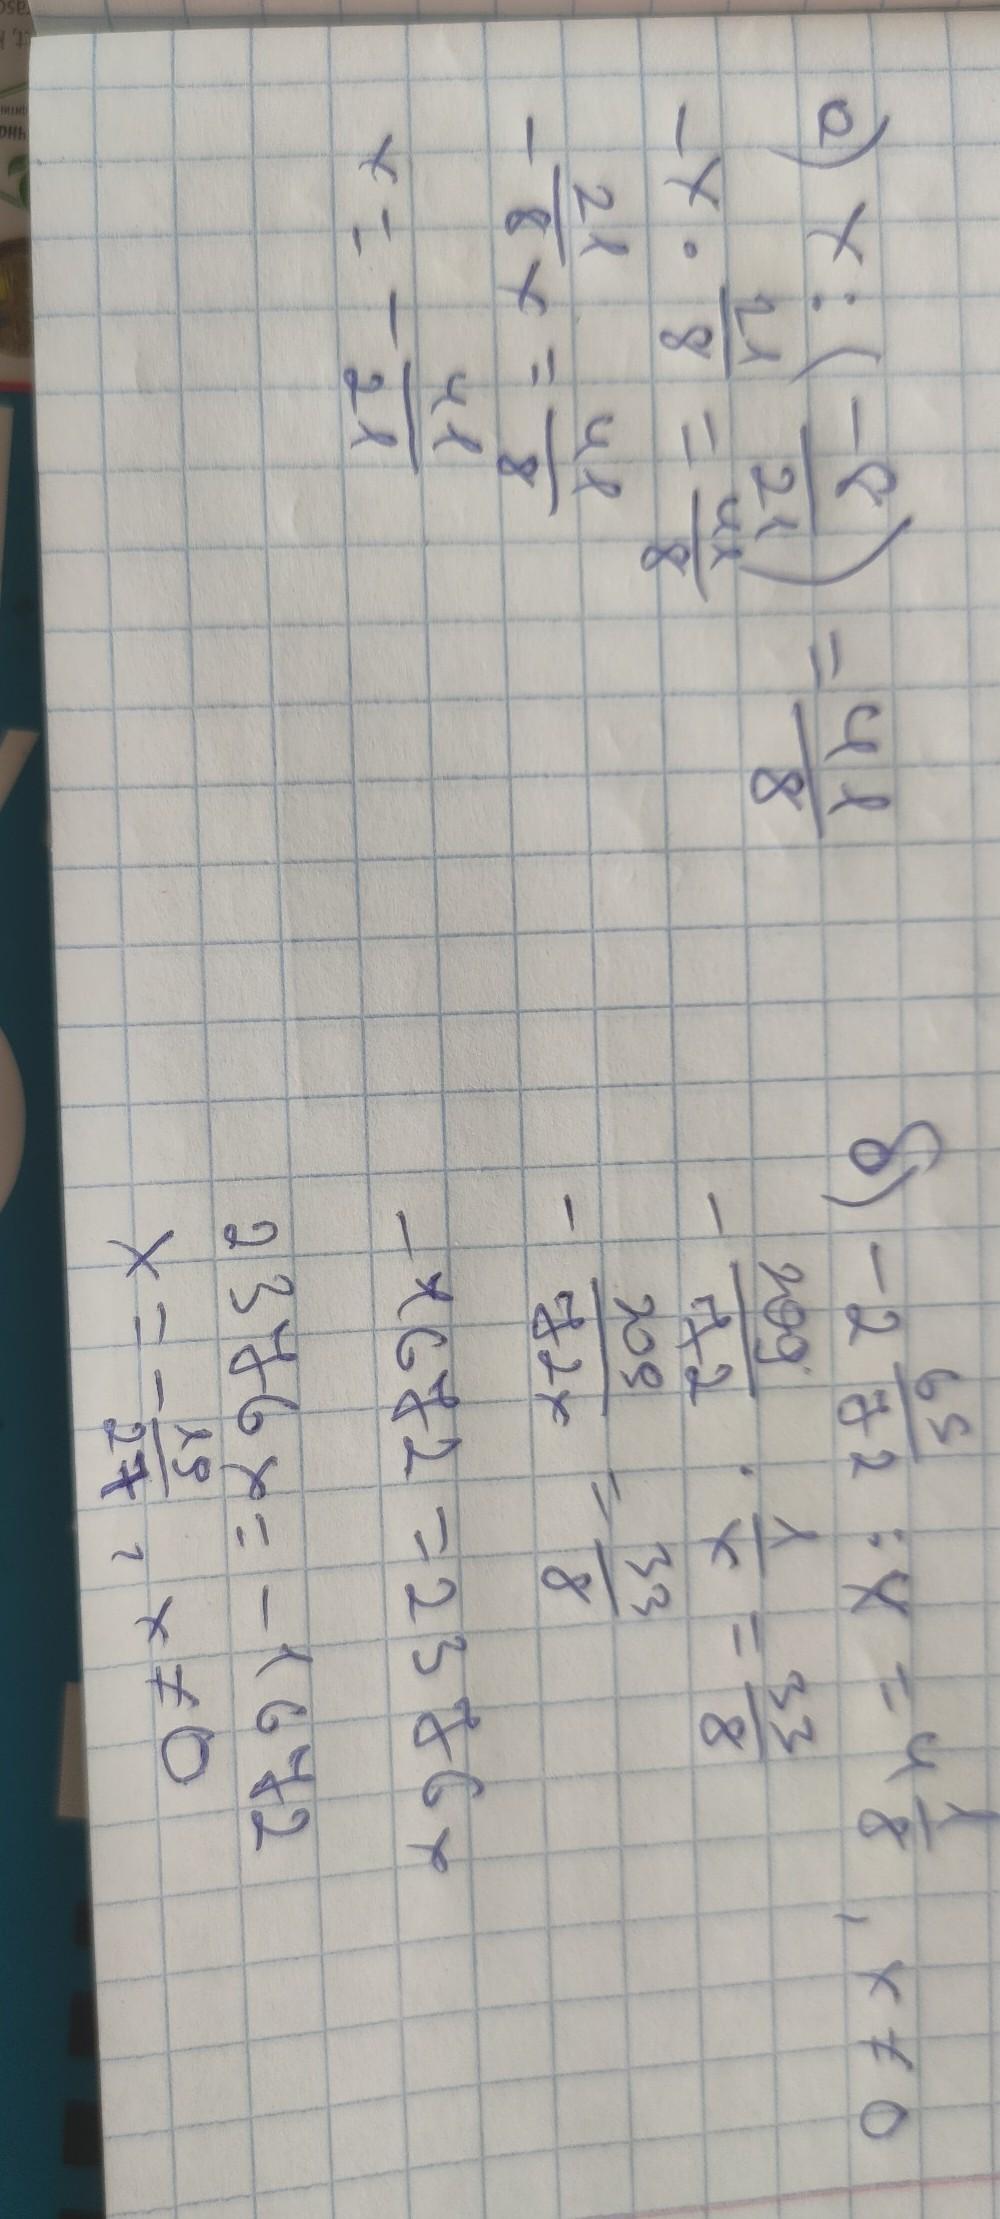 а) x : (-8/21) = 41/8
-x · 21/8 = 41/8
-21/8 x = 41/8
x = -41/21
б) -2 65/72 : x = 4 1/8, x ≠ 0
-209/72 · 1/x = 33/8
-209/72x = 33/8
-1672 = 2376x
2376x = -1672
x = -19/27, x ≠ 0